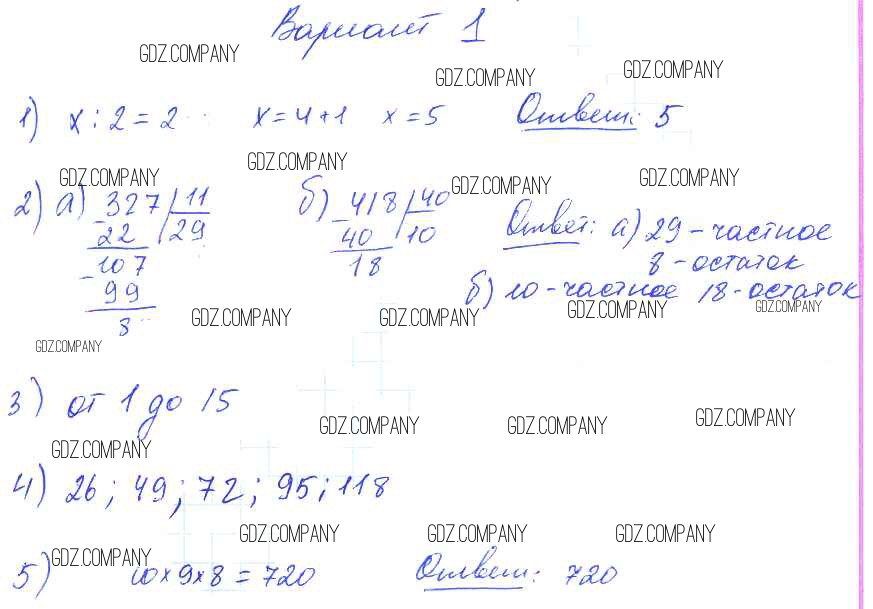 Вариант 1
GDZ.COMPANY
GDZ.COMPANY GDZ.COMPANY
1) x : 2 = 2 x = 4 + 1 x = 5 Ответ: 5
GDZ.COMPANY GDZ.COMPANY GDZ.COMPANY GDZ.COMPANY
2) а) 327 | 11 б) 418 | 40 Ответ: а) 29 - частное
22 29 40 10
107 18 8 - остаток
99 б) 10 - частное 18 - остаток
8
GDZ.COMPANY GDZ.COMPANY GDZ.COMPANY GDZ.COMPANY
GDZ.COMPANY
3) от 1 до 15
GDZ.COMPANY GDZ.COMPANY GDZ.COMPANY
GDZ.COMPANY
4) 26 ; 49 ; 72 ; 95 ; 118
GDZ.COMPANY GDZ.COMPANY GDZ.COMPANY
GDZ.COMPANY
5) 10 x 9 x 8 = 720 Ответ: 720